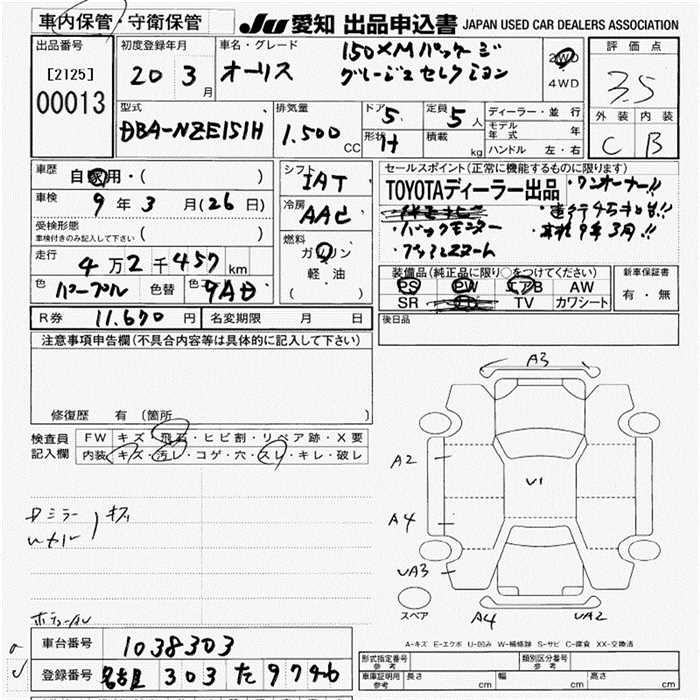 車内保管・守衛保管
JU 愛知 出品申込書 JAPAN USED CAR DEALERS ASSOCIATION
出品番号
[2125]
00013
初度登録年月
20 3月
車名・グレード
オーリス
150XMパッケージ
2WD
4WD
評価点
3.5
外装 内装
C B
型式
DBA-NZE151H
排気量
1.500 CC
ドア 5
形状 H
定員 5人
積載 kg
ディーラー・並行
モデル年式 年
ハンドル 左・右
車歴 自家用・( )
車検 9年3月(26日)
受検形態
車検付きのみ記入して下さい ( )
走行 4万2千457km
色 パープル 色替 色 9AD
シフト
IAT
冷房
AAC
燃料
ガソリン
軽油
( )
セールスポイント(正常に機能するものに限ります)
TOYOTAディーラー出品
・ワンオーナー!!
・バックモニター
・車検9年3月!!
装備品(純正品に限り○をつけてください)
PS PW エアB AW
SR TV カワシート
新車保証書
有・無
後日品
R券 11.670円 名変期限 月 日
注意事項申告欄(不具合内容等は具体的に記入して下さい)
修復歴 有 (箇所 )
検査員記入欄
FW キズ・飛石・ヒビ割・リペア跡・X要
内装 キズ・汚レ・コゲ・穴・スレ・キレ・破レ
A3
A2
V1
A4
UA3
A4
UA2
スペア
キズ
A-キズ E-エクボ U-凹み W-補修跡 S-サビ C-腐食 XX-交換済
車台番号 1038303
登録番号 名古屋 303 た 9746
形式指定番号 参考
類別区分番号 参考
車庫証明用 参考 長さ cm 幅 cm 高さ cm